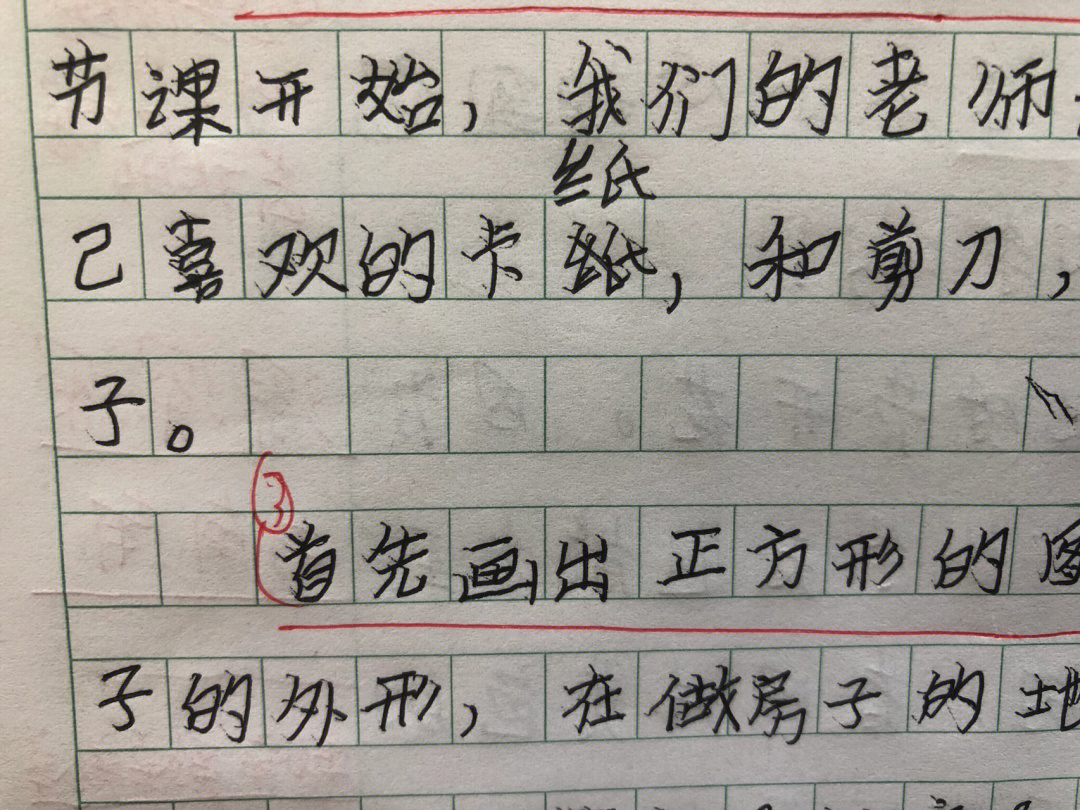 节课开始,我们的老师
纸
己喜欢的卡纸,和剪刀,
子。
③
首先画出正方形的图
子的外形,在做房子的地